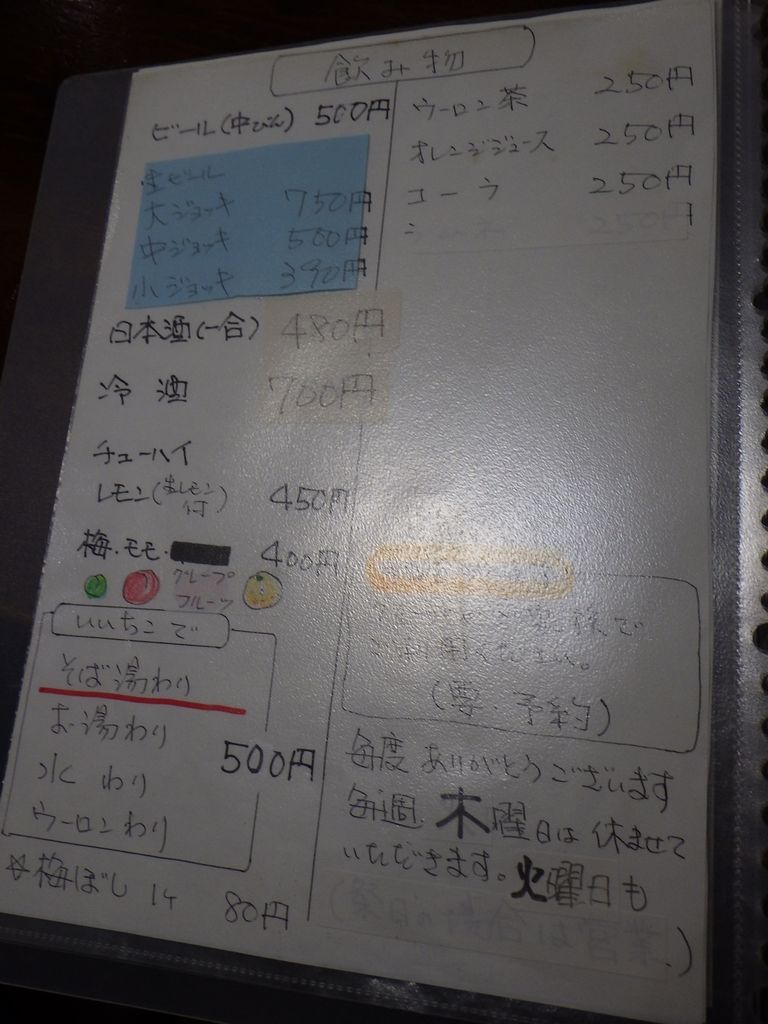 飲み物
ビール(中びん) 500円
生ビール
大ジョッキ 750円
中ジョッキ 500円
小ジョッキ 390円
日本酒(一合) 480円
冷酒 700円
チューハイ
レモン(生レモン付) 450円
梅・モモ・ 400円
グレープ
フルーツ
いいちこで
そば湯わり
お湯わり
水わり
ウーロンわり
500円
☆梅ぼし 1ケ 80円
ウーロン茶 250円
オレンジジュース 250円
コーラ 250円
250円
(要予約)
毎度ありがとうございます
毎週木曜日は休ませて
いただきます。火曜日も
(祭日の場合は営業)